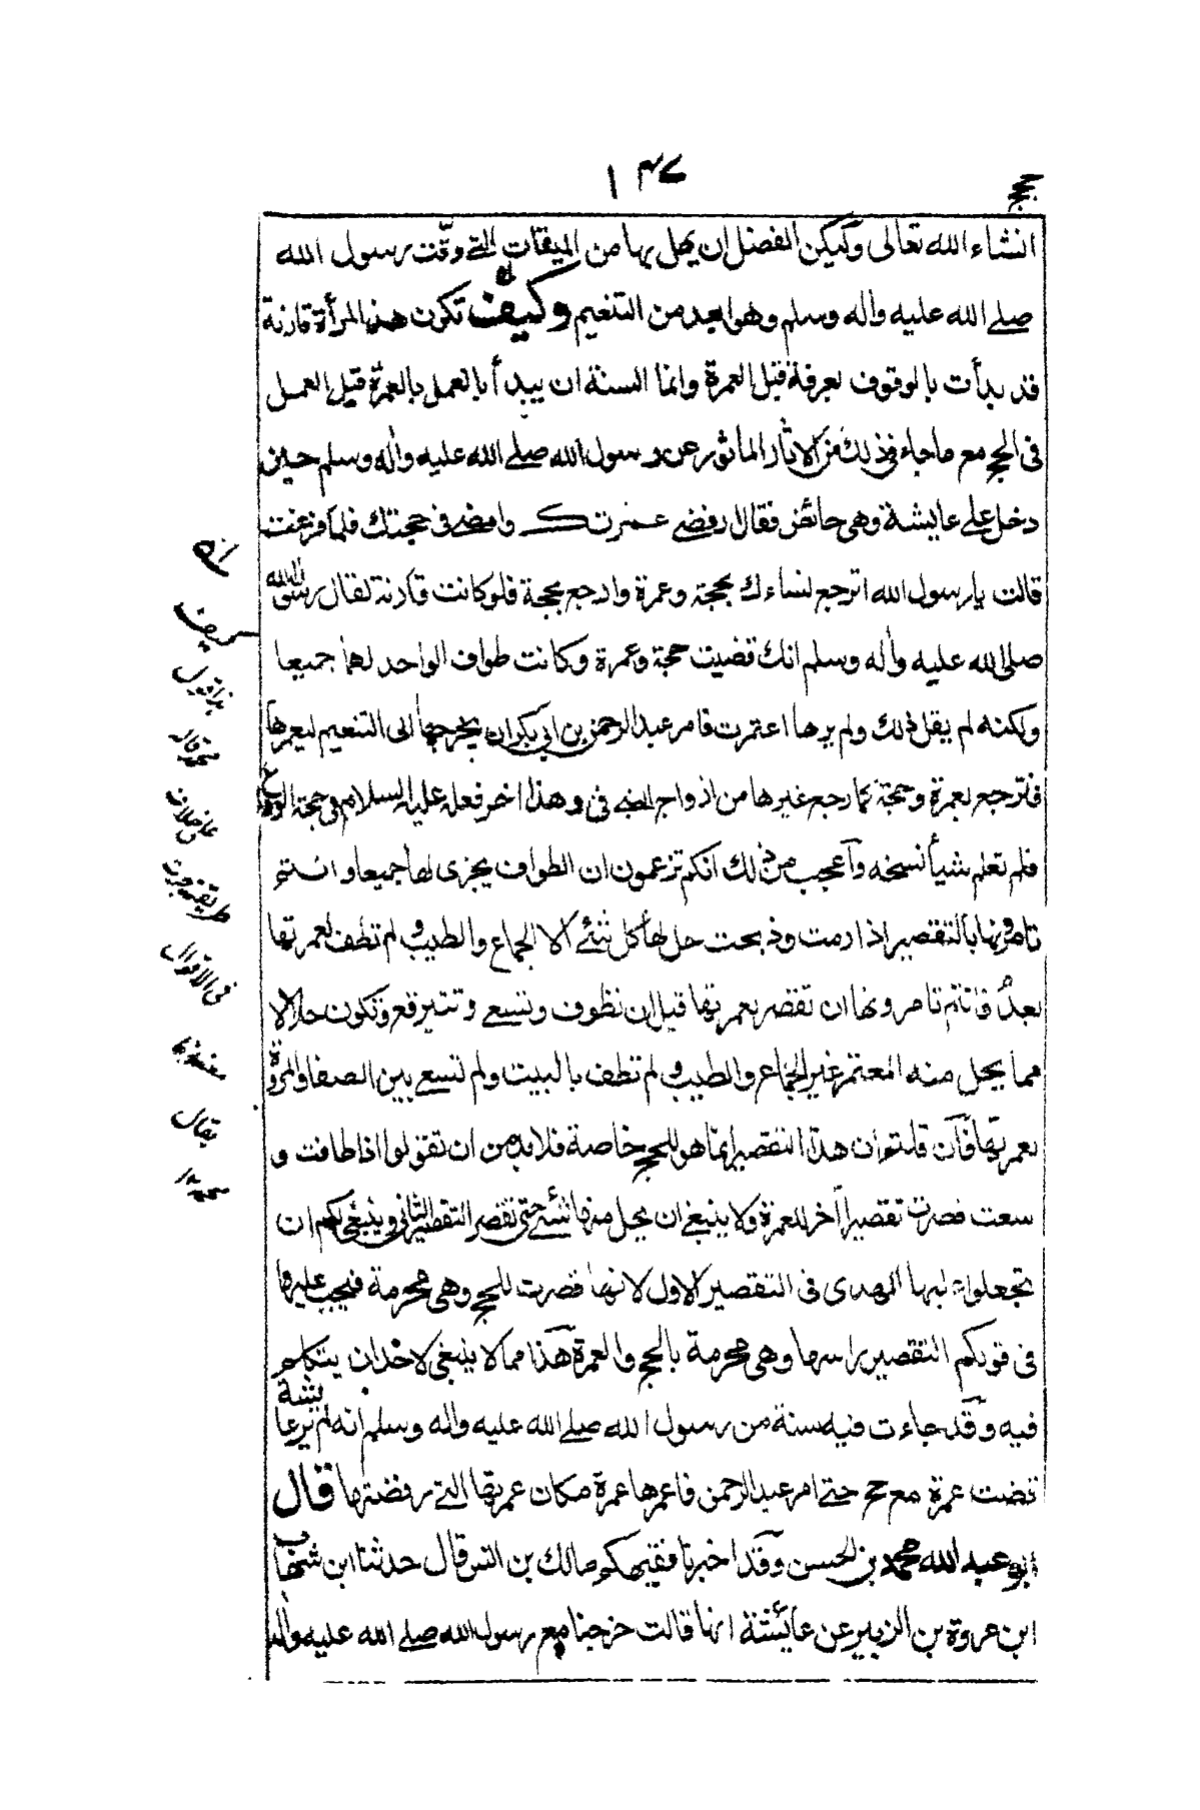 ١٤٧
حج
انشاء الله تعالى ولكن الفضل ان يهل بها من الميقات التے وقت رسول الله
صلے الله عليه واله وسلم وهو ابعد من التنعيم وكيف تكون هذه المرأة قارنة
قد بدأت بالوقوف بعرفة قبل العمرة وانما السنة ان يبدأ بالعمل بالعمرة قبل العمل
فى الحج مع ماجاء فى ذلك من الاثار الماثور عن رسول الله صلے الله عليه واله وسلم حين
دخل علے عايشة وهى حائض فقال ارفضے عمرتك وامضے فى حجتك فلما فرغت
قالت يا رسول الله اترجع نساءك بحجة وعمرة وارجع بحجة فلو كانت قارنة لقال رسول الله
صلى الله عليه واله وسلم انك قضيت حجة وعمرة وكانت طواف الواحد لهما جميعا
ولكنه لم يقل ذلك ولم يرها اعتمرت فامر عبد الرحمن بن ابي بكر ان يخرجها الى التنعيم ليعمرها
فترجع بعمرة وحجة كما رجع غيرها من ازواج النبے فى وهذا اخر فعله عليه السلام فى حجة الوداع
فلم تعلم شيأ نسخه وآعجب من ذلك انكم تزعمون ان الطواف يجزى لهما جميعا وانتم
تامرونها بالتقصير اذا رمت وذبحت حل لها كل شئے الا الجماع والطيب ولم تطف لعمرتها
بعد فانتم تامرونها ان تقصر بعمرتها قبل ان تطوف وتسعے وتكون حلالا
مما يحل منه المعتمر غير الجماع والطيب ولم تطف بالبيت ولم تسع بين الصفا والمروة
بعمرتها فآن قلتم ان هذا التقصير انما هو للحج خاصة فلابد من ان تقولوا اذا طافت و
سعت قصرت تقصيرا آخر للعمرة ولا ينبغے ان يحل منها شئے حتى تقصر التقصير الثانى وينبغى لكم ان
تجعلوا عليها الهدى فى التقصير الاول لانها قصرت للحج وهى محرمة فيجب عليها
فى قولكم التقصير براسها وهى محرمة بالحج والعمرة هذا مما لا ينبغى لاحد ان يتكلم
فيه وقد جاءت فيه سنة من رسول الله صلے الله عليه واله وسلم انه لم ير عايشة
قضت عمرة مع حج حتے امر عبد الرحمن فاعمرها عمرة مكان عمرتها التے رفضتها قال
ابو عبد الله محمد بن الحسن وقد اخبرنا فقيهكم مالك بن انس قال حدثنا ابن شهاب
ابن عروة بن الزبير عن عائشة انها قالت خرجنا مع رسول الله صلے الله عليه واله